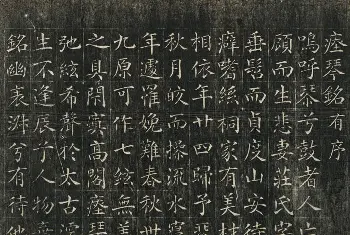 瘞琴銘有序
嗚呼琴兮鼓者人亡
顧而生悲妻莊氏
垂髫而貞度山安
癖嗜絲桐家有美材
相依年廿四歸予
秋月皎而操流水
年遽罹娩難春秋廿
九原可作七絃無
之具閟寘高閣瘞琴
弛絃希聲於太古
生不逢辰予人物
銘幽衷渺兮有待